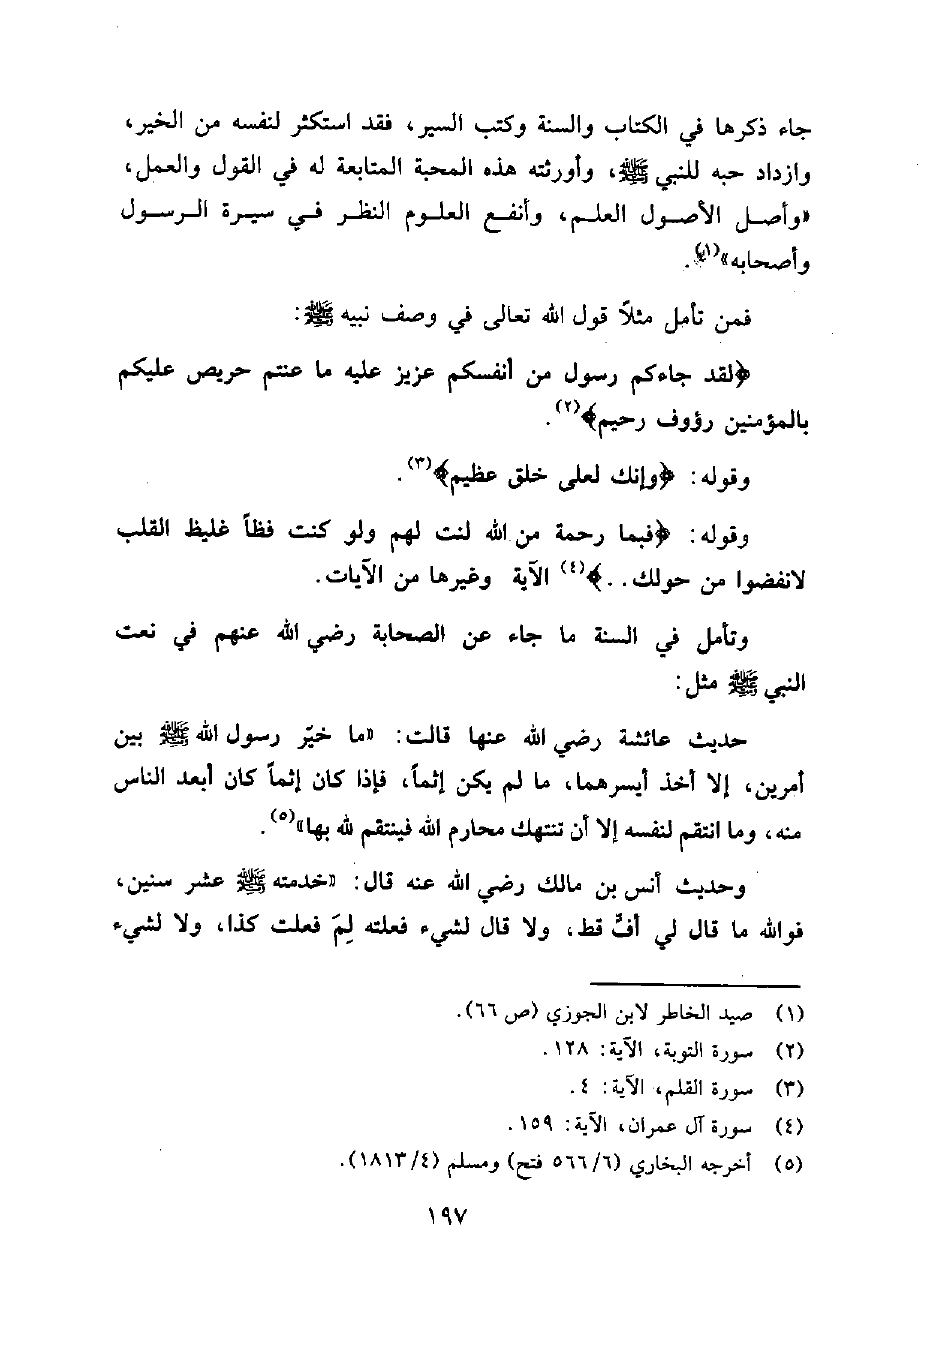 جاء ذكرها في الكتاب والسنة وكتب السير، فقد استكثر لنفسه من الخير،
وازداد حبه للنبي ﷺ، وأورثته هذه المحبة المتابعة له في القول والعمل،
«وأصل الأصول العلم، وأنفع العلوم النظر في سيرة الرسول
وأصحابه»(١).
فمن تأمل مثلاً قول الله تعالى في وصف نبيه ﷺ:
﴿لقد جاءكم رسول من أنفسكم عزيز عليه ما عنتم حريص عليكم
بالمؤمنين رؤوف رحيم﴾(٢).
وقوله: ﴿وإنك لعلى خلق عظيم﴾(٣).
وقوله: ﴿فبما رحمة من الله لنت لهم ولو كنت فظاً غليظ القلب
لانفضوا من حولك..﴾(٤) الآية وغيرها من الآيات.
وتأمل في السنة ما جاء عن الصحابة رضي الله عنهم في نعت
النبي ﷺ مثل:
حديث عائشة رضي الله عنها قالت: «ما خيّر رسول الله ﷺ بين
أمرين، إلا أخذ أيسرهما، ما لم يكن إثماً، فإذا كان إثماً كان أبعد الناس
منه، وما انتقم لنفسه إلا أن تنتهك محارم الله فينتقم لله بها»(٥).
وحديث أنس بن مالك رضي الله عنه قال: «خدمته ﷺ عشر سنين،
فوالله ما قال لي أفٍّ قط، ولا قال لشيء فعلته لِمَ فعلت كذا، ولا لشيء
(١) صيد الخاطر لابن الجوزي (ص ٦٦).
(٢) سورة التوبة، الآية: ١٢٨.
(٣) سورة القلم، الآية: ٤.
(٤) سورة آل عمران، الآية: ١٥٩.
(٥) أخرجه البخاري (٥٦٦/٦ فتح) ومسلم (١٨١٣/٤).
١٩٧